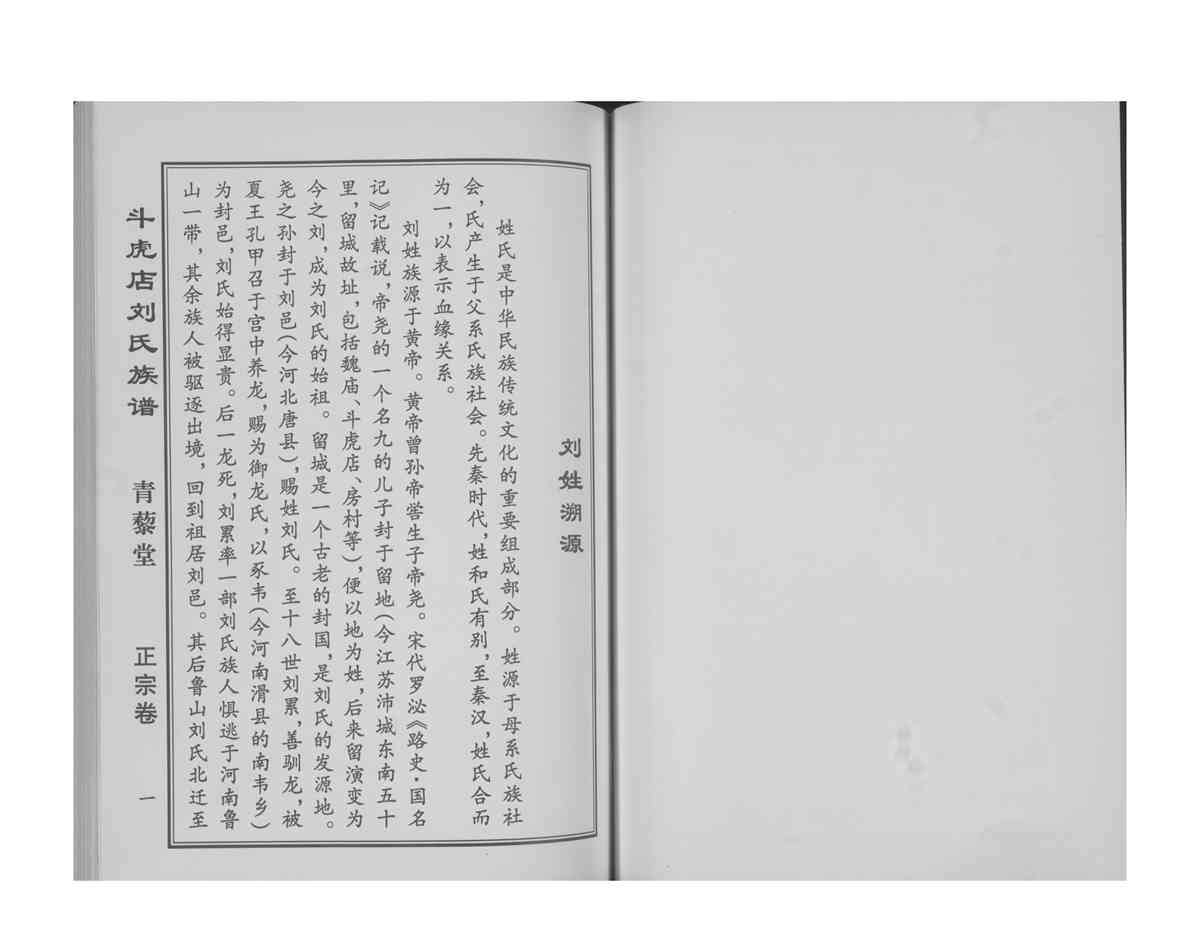 刘姓溯源
姓氏是中华民族传统文化的重要组成部分。姓源于母系氏族社
会，氏产生于父系氏族社会。先秦时代，姓和氏有别，至秦汉，姓氏合而
为一，以表示血缘关系。
刘姓族源于黄帝。黄帝曾孙帝喾生子帝尧。宋代罗泌《路史·国名
记》记载说，帝尧的一个名九的儿子封于留地（今江苏沛城东南五十
里，留城故址，包括魏庙、斗虎店、房村等），便以地为姓，后来留演变为
今之刘，成为刘氏的始祖。留城是一个古老的封国，是刘氏的发源地。
尧之孙封于刘邑（今河北唐县），赐姓刘氏。至十八世刘累，善驯龙，被
夏王孔甲召于宫中养龙，赐为御龙氏，以豕韦（今河南滑县的南韦乡）
为封邑，刘氏始得显贵。后一龙死，刘累率一部刘氏族人惧逃于河南鲁
山一带，其余族人被驱逐出境，回到祖居刘邑。其后鲁山刘氏北迁至
斗虎店刘氏族谱 青藜堂 正宗卷 一